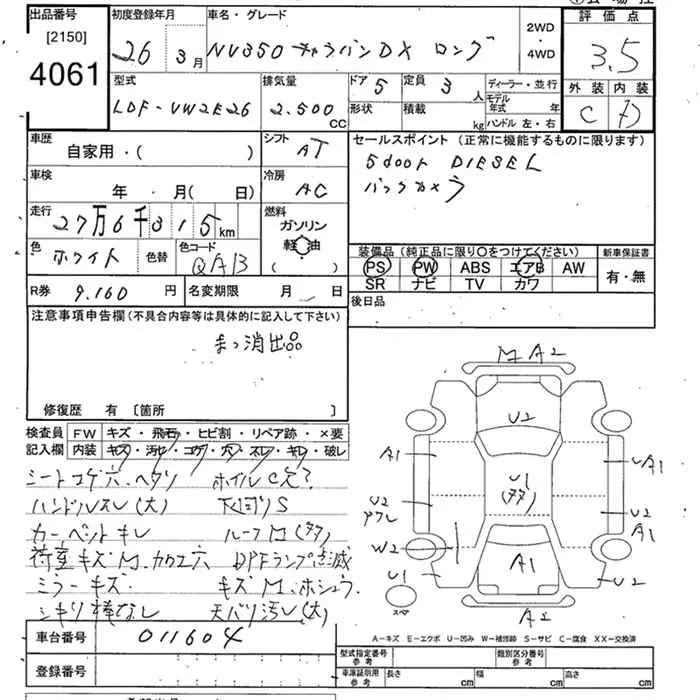 出品番号
[2150]
4061
初度登録年月
26 3月
車名・グレード
NV350 キャラバンDX ロング
2WD
・
4WD
評価点
3.5
型式
LDF-VW2E26
排気量
2.500
CC
ドア 5
定員 3人
ディーラー・並行
形状
積載 kg
モデル年式 年
ハンドル 左・右
外装 内装
C D
車歴
自家用・( )
シフト
AT
車検
年 月( 日)
冷房
AC
走行
27万6千315km
燃料
ガソリン
軽油
( )
色
ホワイト
色替
色コード
QAB
セールスポイント (正常に機能するものに限ります)
5door DIESEL
バックカメラ
装備品 (純正品に限り〇をつけてください)
PS PW ABS エアB AW
SR ナビ TV カワ
新車保証書
有・無
R券 9.160 円
名変期限 月 日
後日品
注意事項申告欄(不具合内容等は具体的に記入して下さい)
まっ消出品
修復歴 有 〔箇所 〕
検査員 FW キズ・飛石・ヒビ割・リペア跡・×要
記入欄 内装 キズ・汚セ・コゲ・穴・スレ・キレ・破レ
シートコゲ穴、ヘタリ
ハンドルスレ(大)
カーペットキレ
荷室キズM、カクエ穴
ミラーキズ
シキリ棒なし
ホイルC欠?
下回りS
ルーフM(多タ)
DPFランプ点滅
キズM、ホシュウ
天バリ汚レ(大)
M A2
U2
A1
U1
A1
U2
U2
A1
W2
A1
U1
U2
A2
スペ
A-キズ E-エクボ U-凹み W-補修跡 S-サビ C-腐食 XX-交換済
車台番号
011604
登録番号
型式指定番号
参考
類別区分番号
参考
車庫証明用
参考
長さ cm
幅 cm
高さ cm